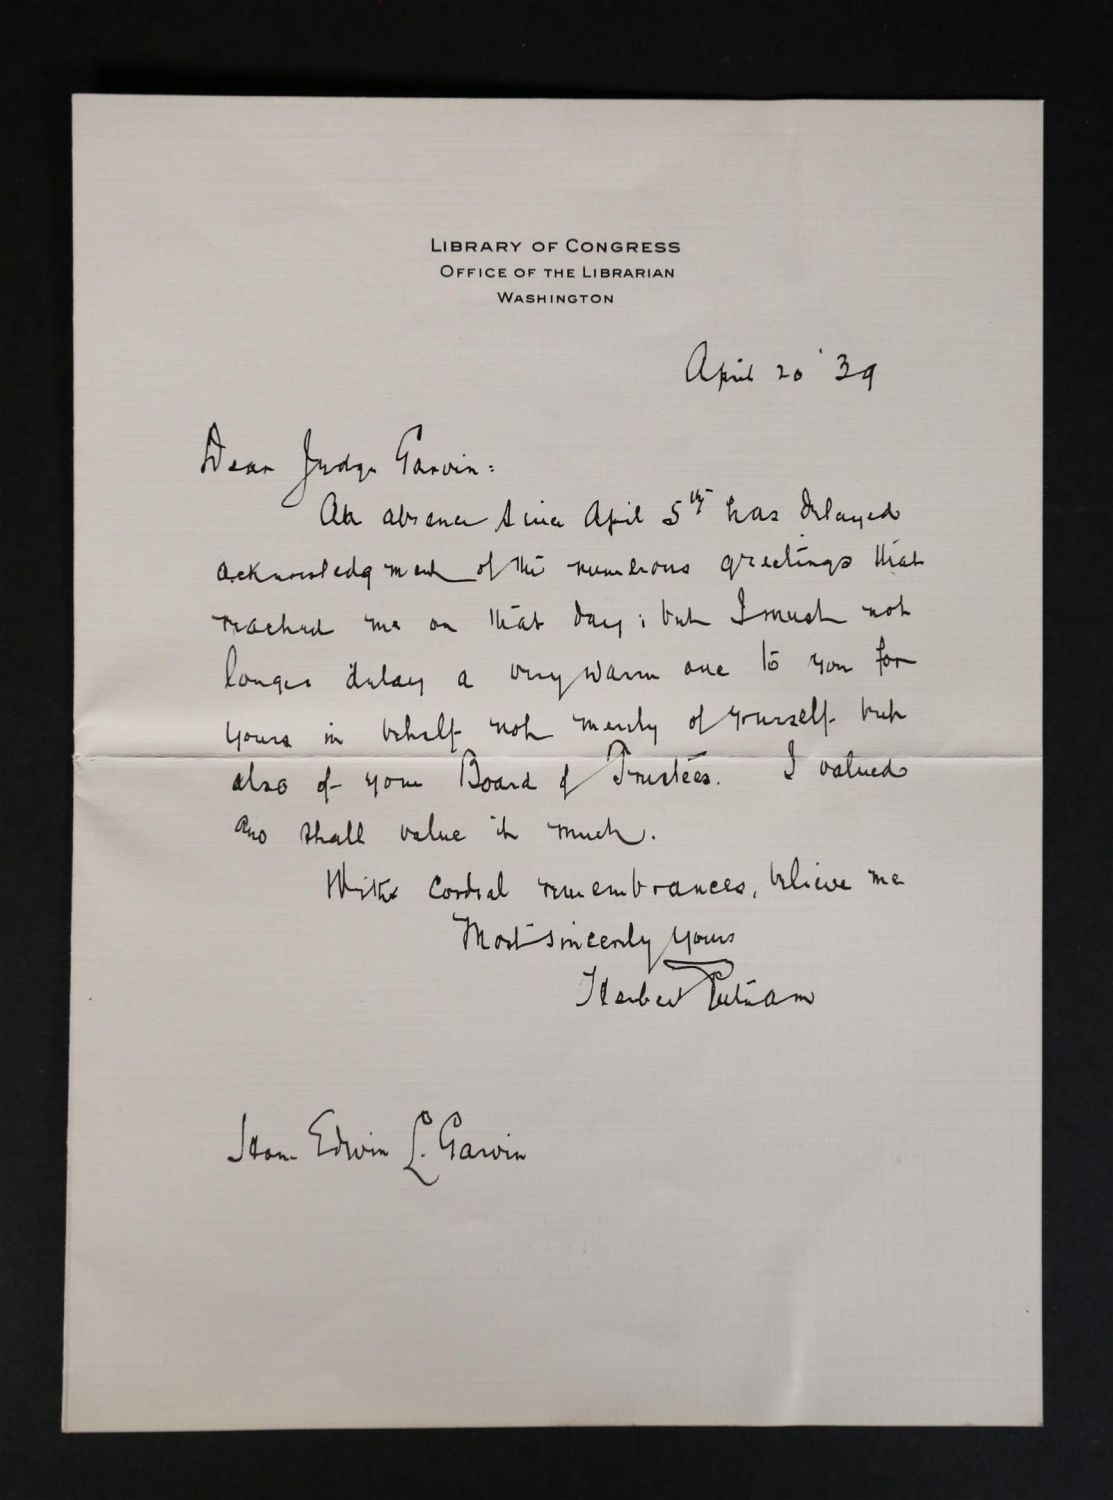 LIBRARY OF CONGRESS
OFFICE OF THE LIBRARIAN
WASHINGTON
April 20 '39
Dear Judge Garvin:
An absence since April 5th has delayed
acknowledgment of the numerous greetings that
reached me on that day; but I must not
longer delay a very warm one to you for
yours in behalf not merely of yourself but
also of your Board of Trustees. I valued
and shall value it much.
With cordial remembrances, believe me
Most sincerely yours
Herbert Putnam
Hon. Edwin L. Garvin